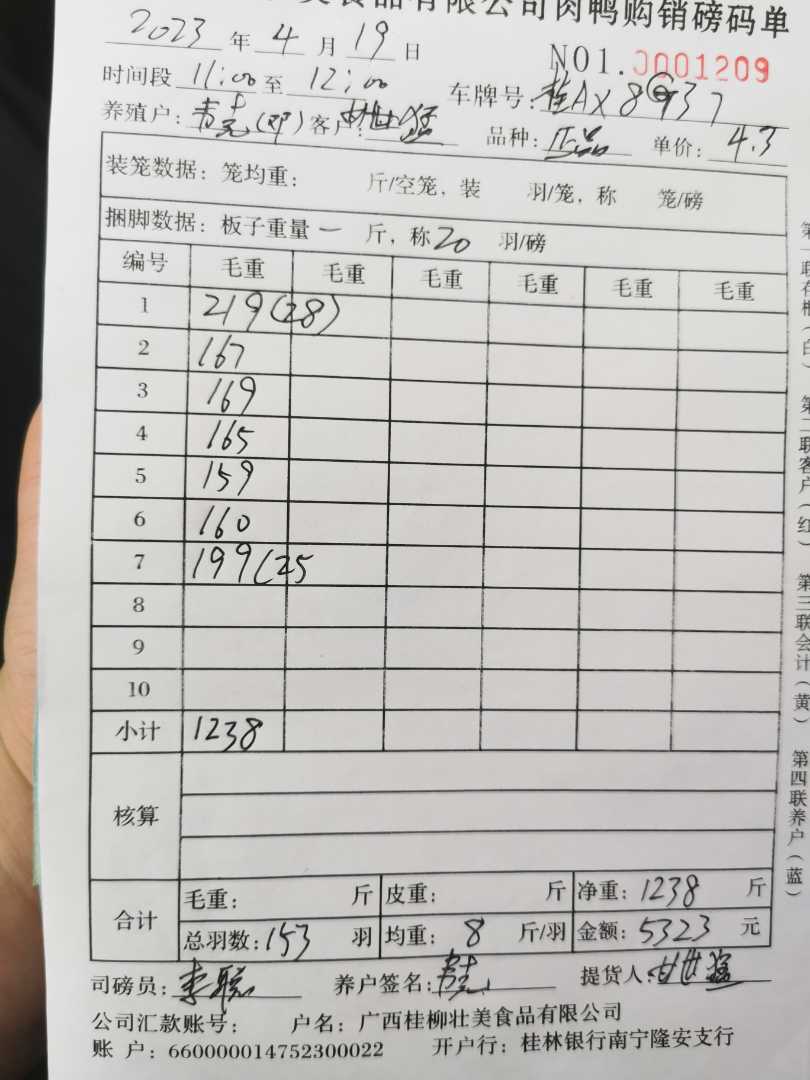 美食品有限公司肉鸭购销磅码单
2023 年 4 月 19 日
NO1.0001209
时间段 11:00 至 12:00
车牌号: 桂AX8937
养殖户: (邓) 客户: 甘世猛 品种: 正品 单价: 4.3
装笼数据: 笼均重: 斤/空笼, 装 羽/笼, 称 笼/磅
捆脚数据: 板子重量 一 斤, 称 20 羽/磅
编号 毛重 毛重 毛重 毛重 毛重 毛重
1 219(28)
2 167
3 169
4 165
5 159
6 160
7 199(25
8
9
10
小计 1238
核算
合计 毛重: 斤 皮重: 斤 净重: 1238 斤
总羽数: 153 羽 均重: 8 斤/羽 金额: 5323 元
司磅员: 李聪 养户签名: 提货人: 甘世猛
公司汇款账号: 户名: 广西桂柳壮美食品有限公司
账 户: 660000014752300022 开户行: 桂林银行南宁隆安支行
联存根(白) 第二联客户(红) 第三联会计(黄) 第四联养户(蓝)